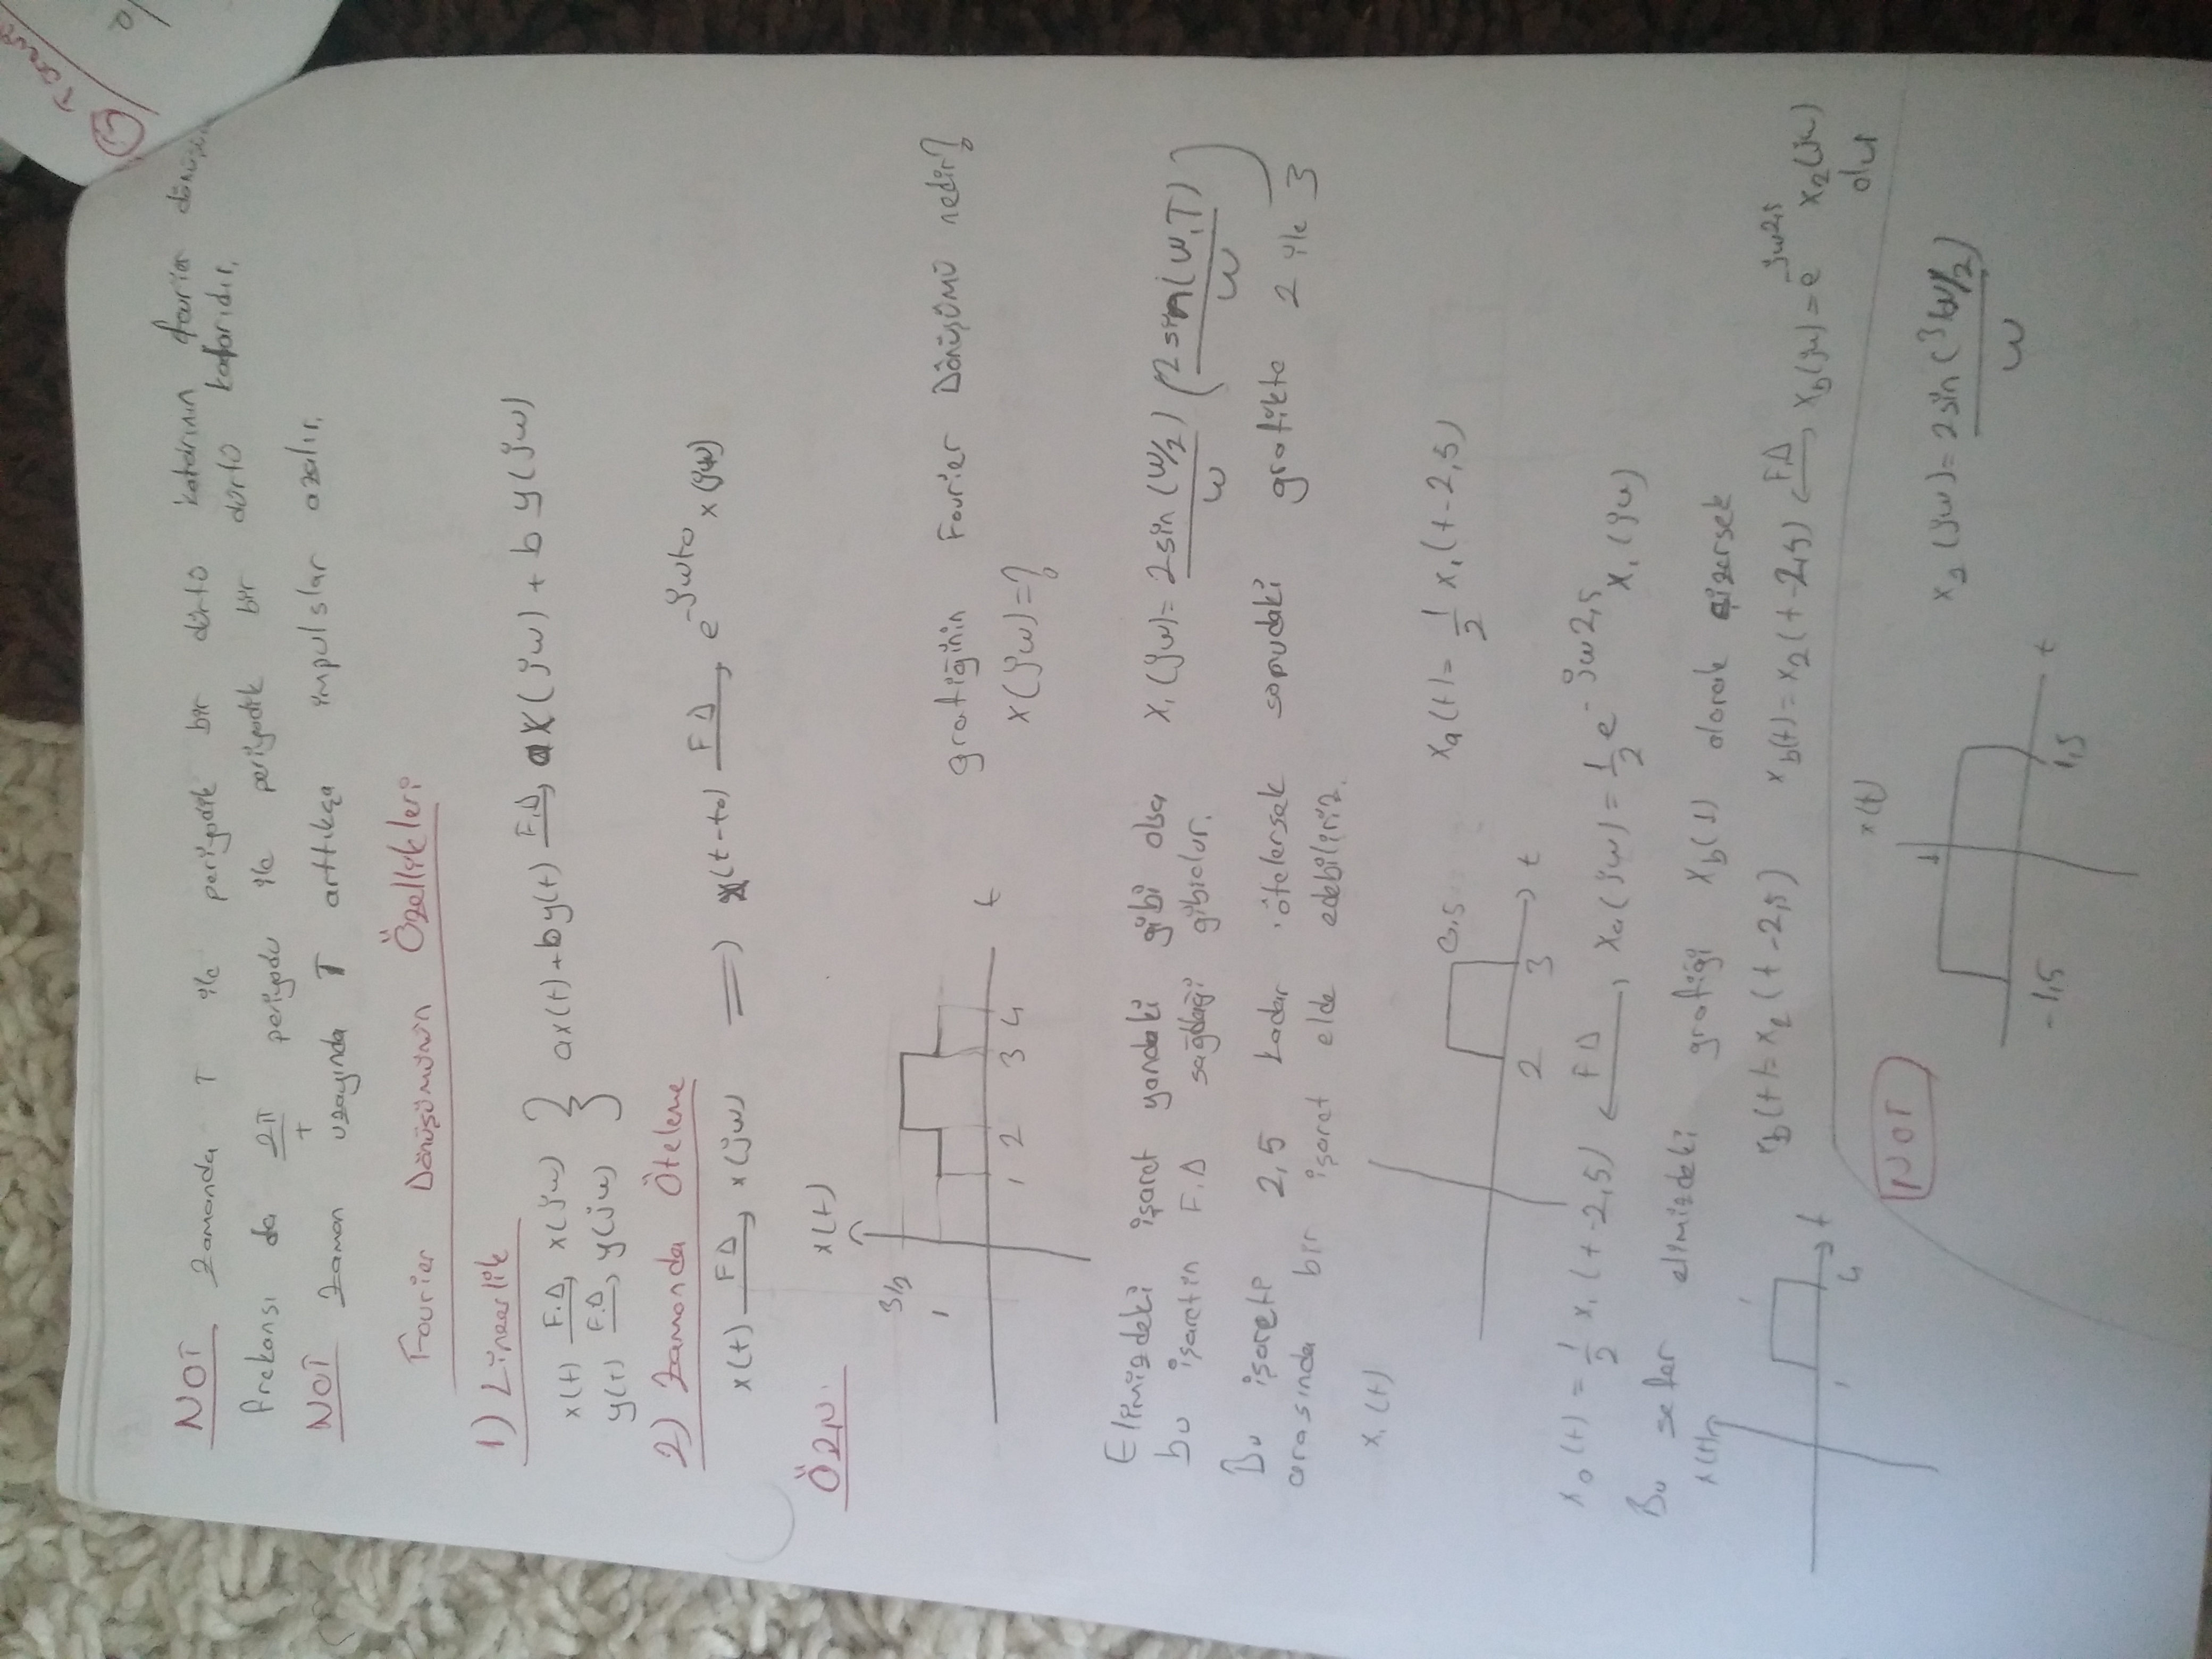 NOT zamanda T ile periyodik bir dürtü katarının fourier
frekansı da 2π/T periyodu ile periyodik bir dürtü katarıdır.
NOT zaman uzayında T arttıkça impulslar azalır.
Fourier Dönüşümünün Özellikleri
1) Lineerlik
x(t) F.D x(jw)
y(t) F.D y(jw) } ax(t)+by(t) F.D aX(jw) + b y(jw)
2) Zamanda Öteleme
x(t) FD x(jw) => x(t-to) FD e^-jwto x(jw)
ÖRN.
x(t)
3/2
1
1 2 3 4 t
grafiğinin Fourier Dönüşümü nedir?
x(jw)=?
Elimizdeki işaret yandaki gibi olsa x1(jw)= 2sin(w/2)/w (2sin(w1T)/w)
bu işaretin F.D sağdaki gibi olur.
Bu işareti 2,5 kadar ötelersek sorudaki grafikte 2 ile 3
arasında bir işaret elde edebiliriz.
x1(t)
0,5
2 3 t
xa(t)= 1/2 x1(t-2,5)
xa(t)= 1/2 x1(t-2,5) FD xa(jw)= 1/2 e^-jw2,5 x1(jw)
Bu sefer elimizdeki grafiği xb(t) olarak çizersek
x(t)
1
1 4 t
xb(t)= x2(t-2,5) xb(t)= x2(t-2,5) FD xb(jw)= e^-jw2,5 x2(jw)
olur
Not
x(t)
1
-1,5 1,5 t
x2(jw)= 2sin(3w/2)/w